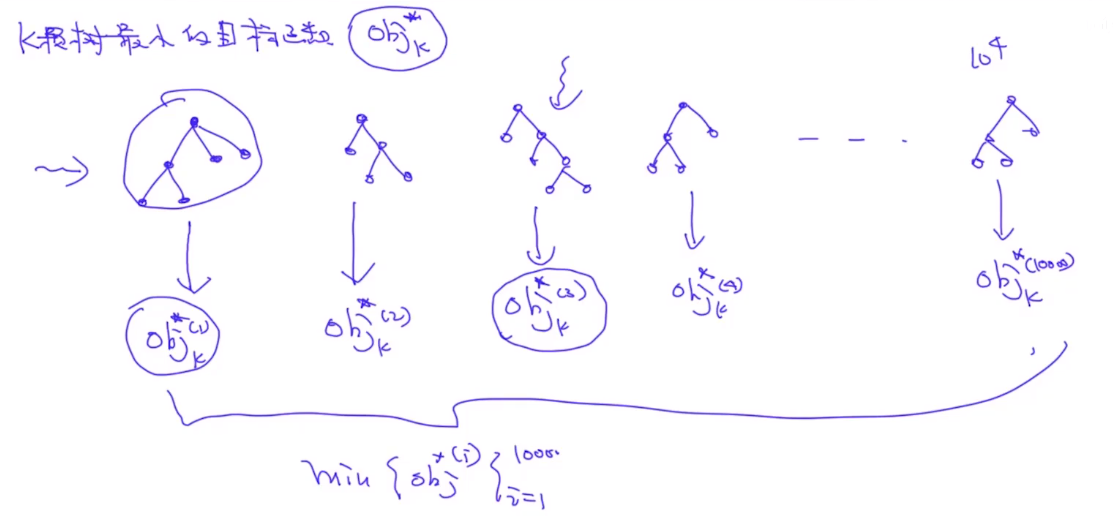 K颗树最小的目标函数 obj*_K
10^4
obj_K^{*(1)} obj_K^{*(2)} obj_K^{*(3)} obj_K^{*(4)} obj_K^{*(10000)}
min { obj^{*(i)} }_{i=1}^{10000}